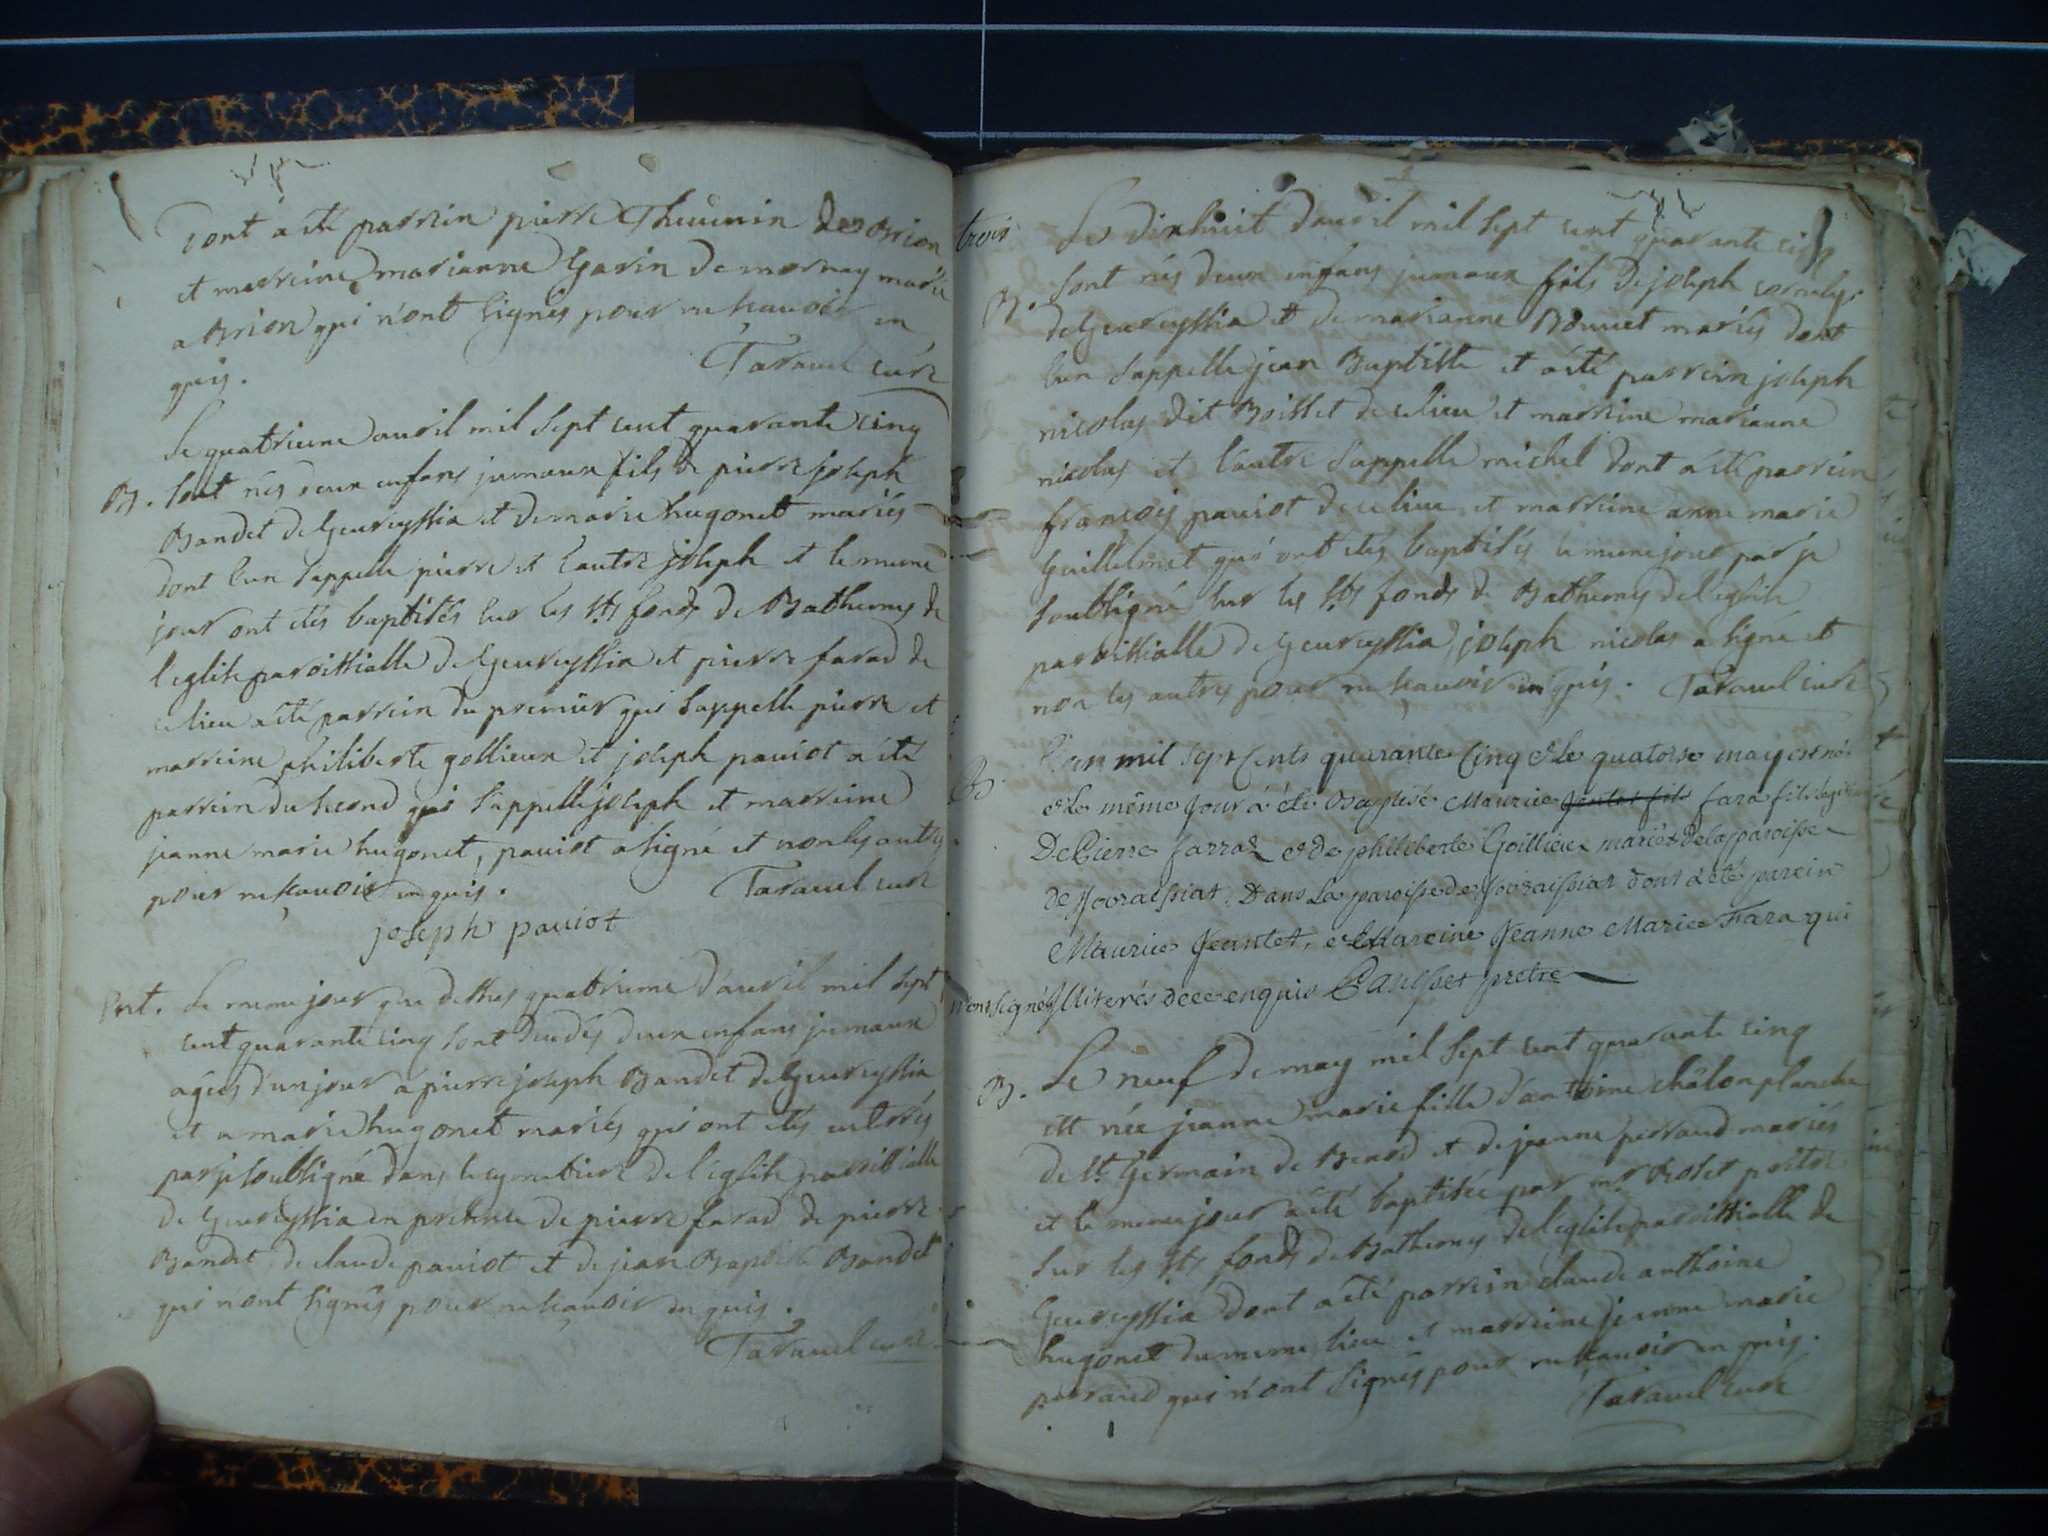 dont a été parrein pierre Thevenin de Brion
et marreine marianne Garin de mornay marié
a Brion qui n'ont signés pour ne sçavoir en
quis. Taravel curé
Le quatrieme avril mil sept cent quarante cinq
B. sont nés deux enfans jumaux fils de pierre joseph
Bandet de Geureyssia et de marie hugonet mariés
dont l'un s'appelle pierre et l'autre joseph et le meme
jour ont etés baptisés sur les sts fonds de Bathemes de
l'eglise paroissialle de Geureyssia et pierre farad de
ce lieu a été parrein du premier qui s'appelle pierre et
marreine philiberte gollieux et joseph paviot a été
parrein du second qui s'appelle joseph et marreine
jeanne marie hugonet, paviot a signé et non les autres
pour ne sçavoir enquis. Taravel curé
joseph paviot
Ent. Le meme jour que dessus quatrieme d'avril mil sept
cent quarante cinq sont decedés deux enfans jumaux
ageés d'un jour a pierre joseph Bandet de Geureyssia
et a marie hugonet mariés qui ont etés enterrés
par je soussigné dans le cymetiere de l'eglise paroissialle
de Geureyssia en presence de pierre farad de pierre
Bandet de claude paviot et de jean Baptiste Bandet
qui n'ont signés pour ne sçavoir enquis.
Taravel curé
trois
Le dixhuit d'avril mil sept cent quarante cinq
B. sont nés deux enfans jumaux fils de joseph
de Geureyssia et de marianne Bouvet mariés dont
l'un s'appelle jean Baptiste et a été parrein joseph
nicolas dit Boisset de ce lieu et marreine marianne
nicolas et l'autre s'appelle michel dont a été parrein
françois paviot de ce lieu et marreine anne marie
Guillelmet qui ont etés baptisés le meme jour par je
soussigné sur les sts fonds de Bathemes de l'eglise
paroissialle de Geureyssia, joseph nicolas a signé et
non les autres pour ne sçavoir enquis. Taravel curé
B. l'an mil sept Cents quarante Cinq & le quatorse may est né
& le même jour à été Baptisé Maurice fara fils legitime
De Pierre farraz & de philiberte Goillieux mariés de la paroisse
de Jovraissiat. Dans la paroisse de Jovraissiat dont à été parein
Maurice Jeantet, & Mareine Jeanne Marie Fara qui
n'ont signés Illiterés de ce enquis prêtre
B. Le neuf de may mil sept cent quarante cinq
est née jeanne marie fille d'antoine châlonplanche
de St. Germain de Beard et de jeanne perraud mariés
et le meme jour a été baptisée par mr Rolet prêtre
sur les sts fonds de Bathemes de l'eglise paroissialle de
Geureyssia dont a été parrein claude anthoine
hugonet du meme lieu et marreine jeanne marie
perraud qui n'ont signés pour ne sçavoir en quis.
Taravel curé